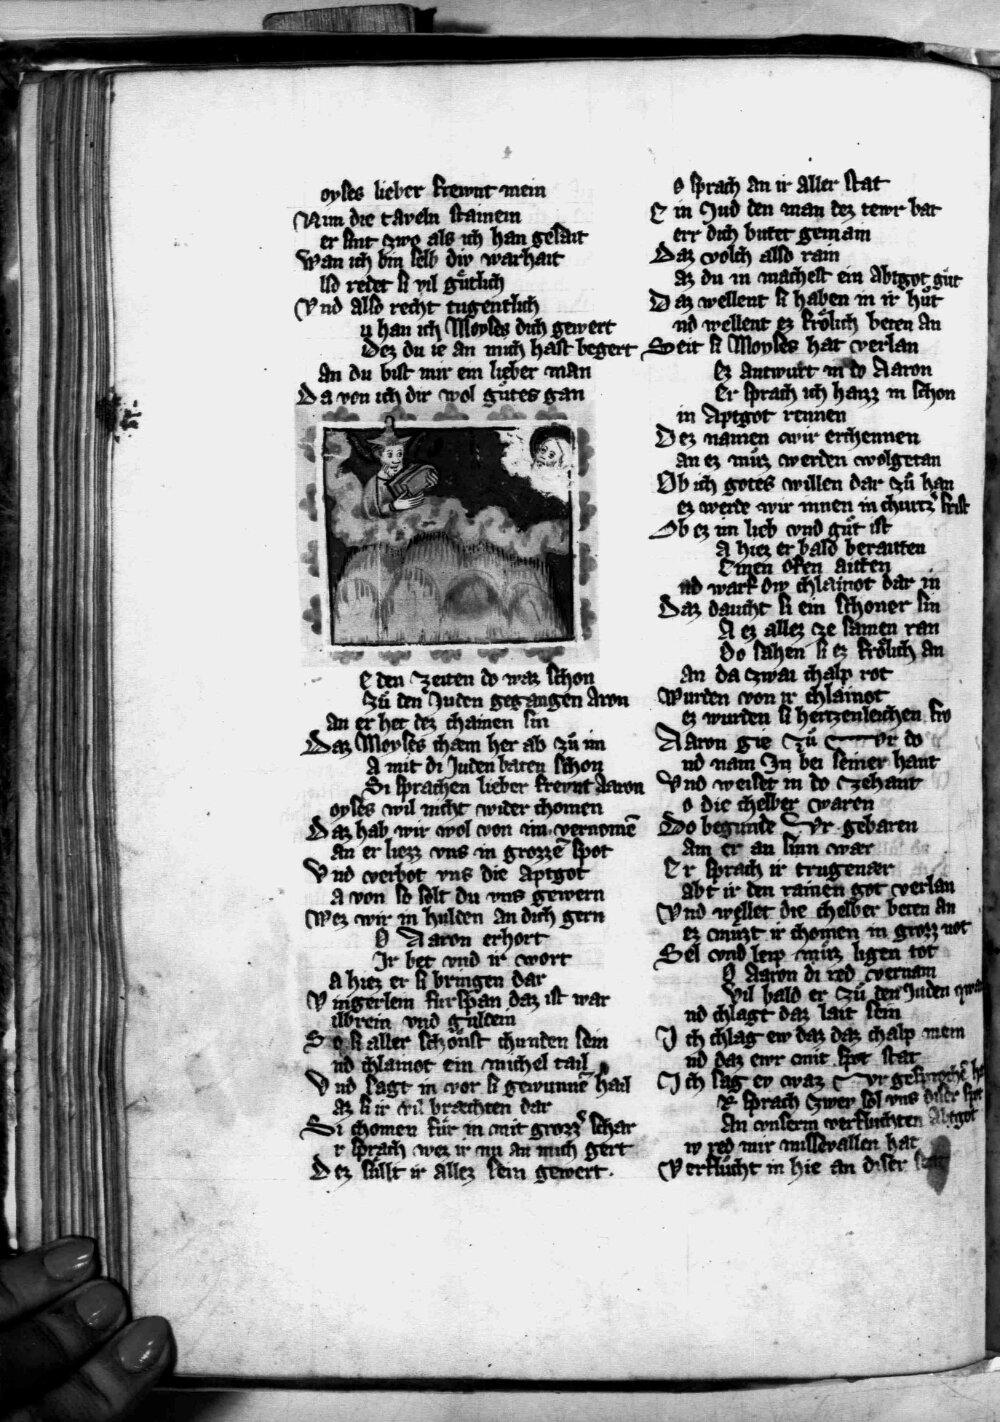 oyses lieber frewnt mein
Nim die taveln stainein
er sint zwo als ich han gesait
Wan ich bin selb diw warhait
lso redet si vil guͤtlich
Vnd also recht tugentlich
u han ich Moyses dich gewert
Dez du ie an mich hast begert
an du bist mir ein lieber man
Da von ich dir wol guͤtes gan
e den zeiten do waz schon
Zuͤ den Juden gegangen Aron
an er het dez chainen sin
Daz Moyses chaem her ab zuͤ im
A mit di Juden baten schon
Si sprachen lieber frevnt Aaron
oyses wil nicht wider chomen
Daz hab wir wol von im vernomē
an er liezz vns in grozzē spot
Vnd verbot vns die aptgot
A von so solt du vns gewern
Wez wir in hulden an dich gern
O Aaron erhort
Ir bet vnd ir wort
A hiez er si bringen dar
Vingerlein fürspan daz ist war
ilbrein vnd guldein
So si aller schönst chunden sein
nd chlainot ein michel tail
Vnd sagt in vor si gewunnē hail
az si ir vil braechten dar
Si chomen für in mit grozzʼ schar
r sprach wez ir nu an mich gert
Dez süllt ir allez sein gewert.
o sprach an ir aller stat
Ein Jud den man dez tewr bat
err dich bitet gemain
Daz volch allso rain
az du in machest ein Abtgot guͤt
Daz wellent si haben in ir huͤt
nd wellent ez frölich beten an
Seit si Moyses hat verlan
Ez antwurt in do Aaron
Er sprach ich hazz in schon
in Aptgot rennen
Dez namen wir erchennen
an ez muͤz werden wolgetan
Ob ich gotes willen dar zuͤ han
ez werde wir innen in churtzʼ frist
Ob ez im lieb vnd guͤt ist
A hiez er bald beraitten
Einen ofen aitten
nd warf diw chlainot dar in
Daz daucht si ein schoner sin
A ez allez ze samen ran
Do sahen si ez frölich an
an da zwai chalp rot
Wurden von ir chlainot
ez wurden si hertzenleichen fro
Aaron gie zuͤ Vr do
nd nam In bei seiner hant
Vnd weiset in do zehant
o die chelber waren
Do begunde Vr gebaren
am er an sinn war
Er sprach ir trugenaer
abt ir den rainen got verlan
Vnd wellet die chelber beten an
ez muͤzt ir chomen in grozz not
Sel vnd leip muͤz ligen tot
O Aaron di red vernam
Vil bald er zuͤ den Juden
nd chlagt daz lait sein
Ich chlag ew daz daz chalp mein
nd daz ewr mit spot stat
Ich sag ev waz Vr gesprochē
R sprach zwey sol vns diser spot
An vnserm verfluchten Abtgot
iv red mir missevallen hat
Verfluͤcht in hie an diser